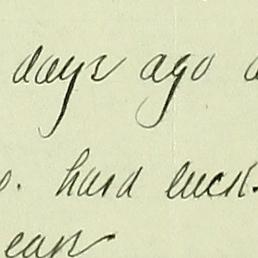 days ago
hard luck.